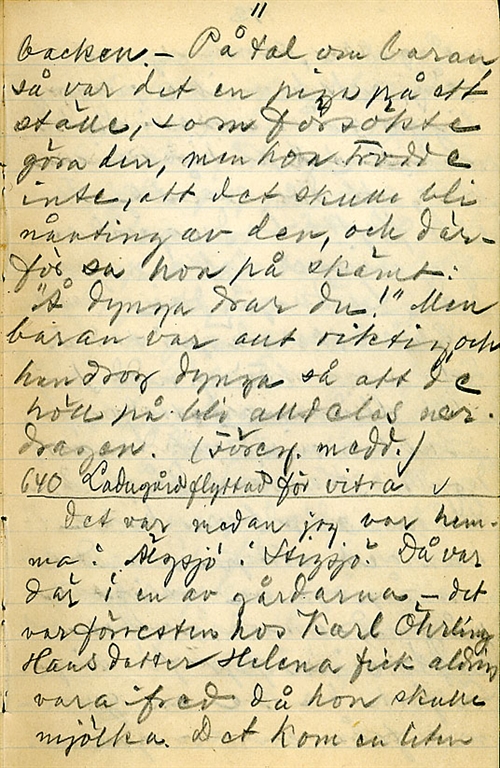 11
backen. – På tal om baran
så var det en piga på ett
ställe, som försökte
göra den, men hon trodde
inte, att det skulle bli
nånting av den, och där-
för sa hon på skämt:
"Å dynga drar du!" Men
baran var aut riktig, och
han drog dynga så att de
höll på bli alldeles ner-
dragen. (Föreg. medd.)
640 Ladugård flyttad för vitra √
Det var medan jag var hem-
ma i Älgsjö i Stigsjö. Då var
där i en av gårdarna – det
var förresten hos Karl Öhrling
Hans dotter Helena fick aldrig
vara ifred då hon skulle
mjölka. Det kom en liten